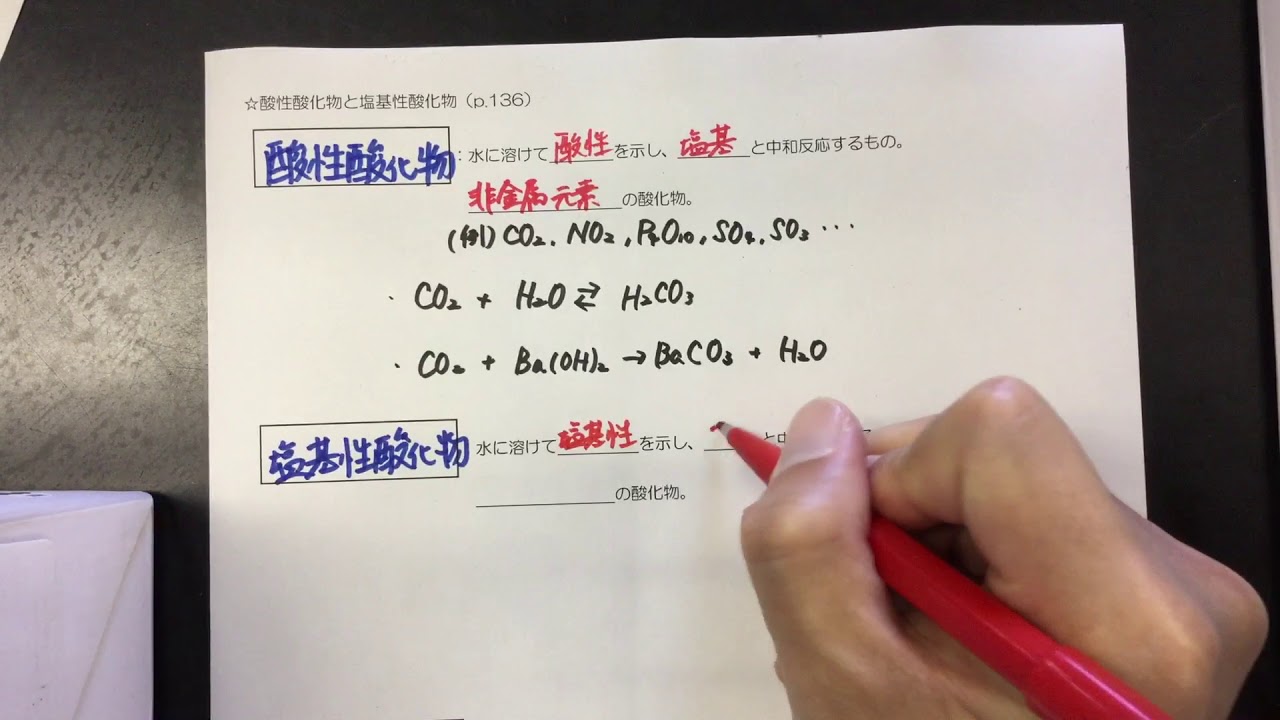 ☆酸性酸化物と塩基性酸化物（p.136）
酸性酸化物：水に溶けて酸性を示し、塩基と中和反応するもの。
非金属元素の酸化物。
(例) CO₂, NO₂, P₄O₁₀, SO₄, SO₃ …
・ CO₂ + H₂O ⇄ H₂CO₃
・ CO₂ + Ba(OH)₂ → BaCO₃ + H₂O
塩基性酸化物 水に溶けて塩基性を示し、 と中
の酸化物。